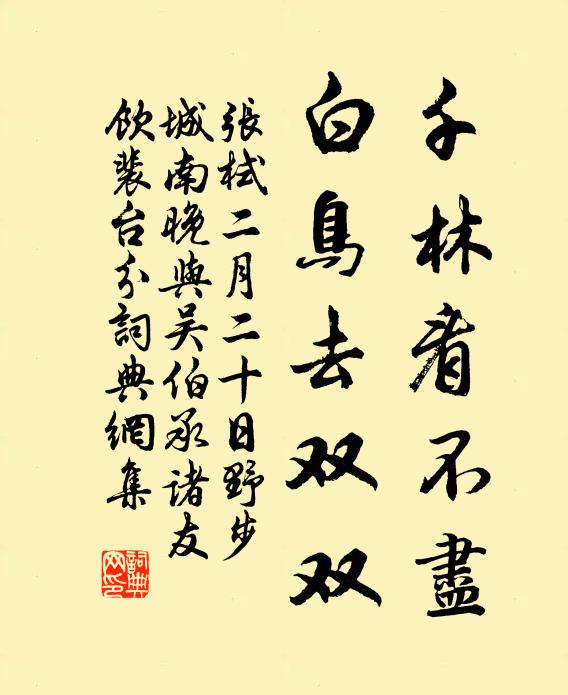 千林看不盡
白鳥去双双
張栻二月二十日野步
城南晚與吴伯承諸友
飲裴台分詞典網集
詞典網印